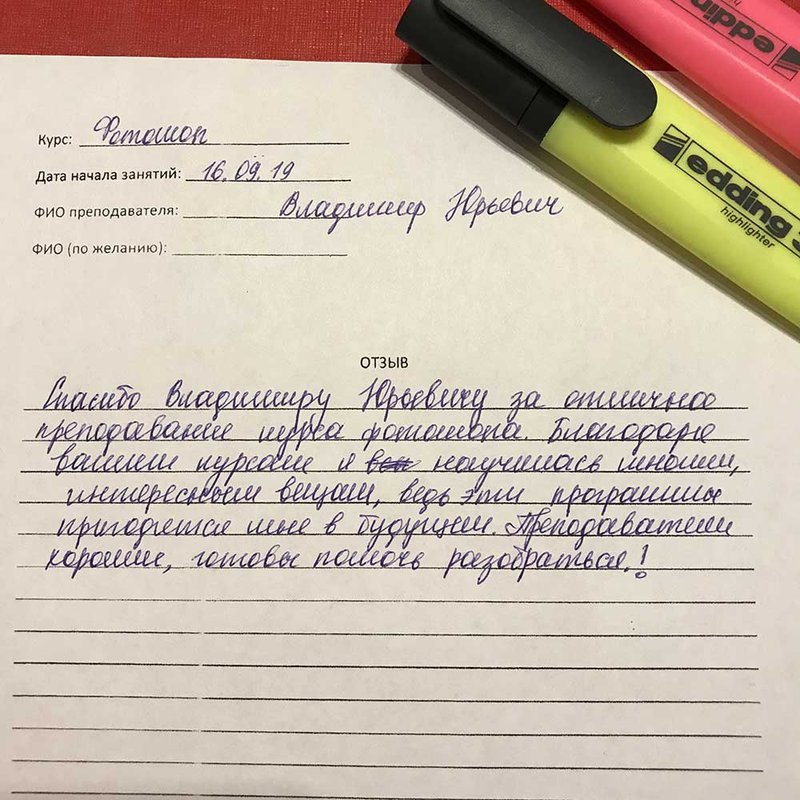 Курс: Фотошоп
Дата начала занятий: 16.09.19
ФИО преподавателя: Владимир Юрьевич
ФИО (по желанию):
ОТЗЫВ
Спасибо Владимиру Юрьевичу за отличное
преподавание курса фотошопа. Благодаря
вашим курсам я научилась многим,
интересным вещам, ведь эти программы
пригодятся мне в будущем. Преподаватели
хорошие, готовы помочь разобраться!
edding
edding
highlighter